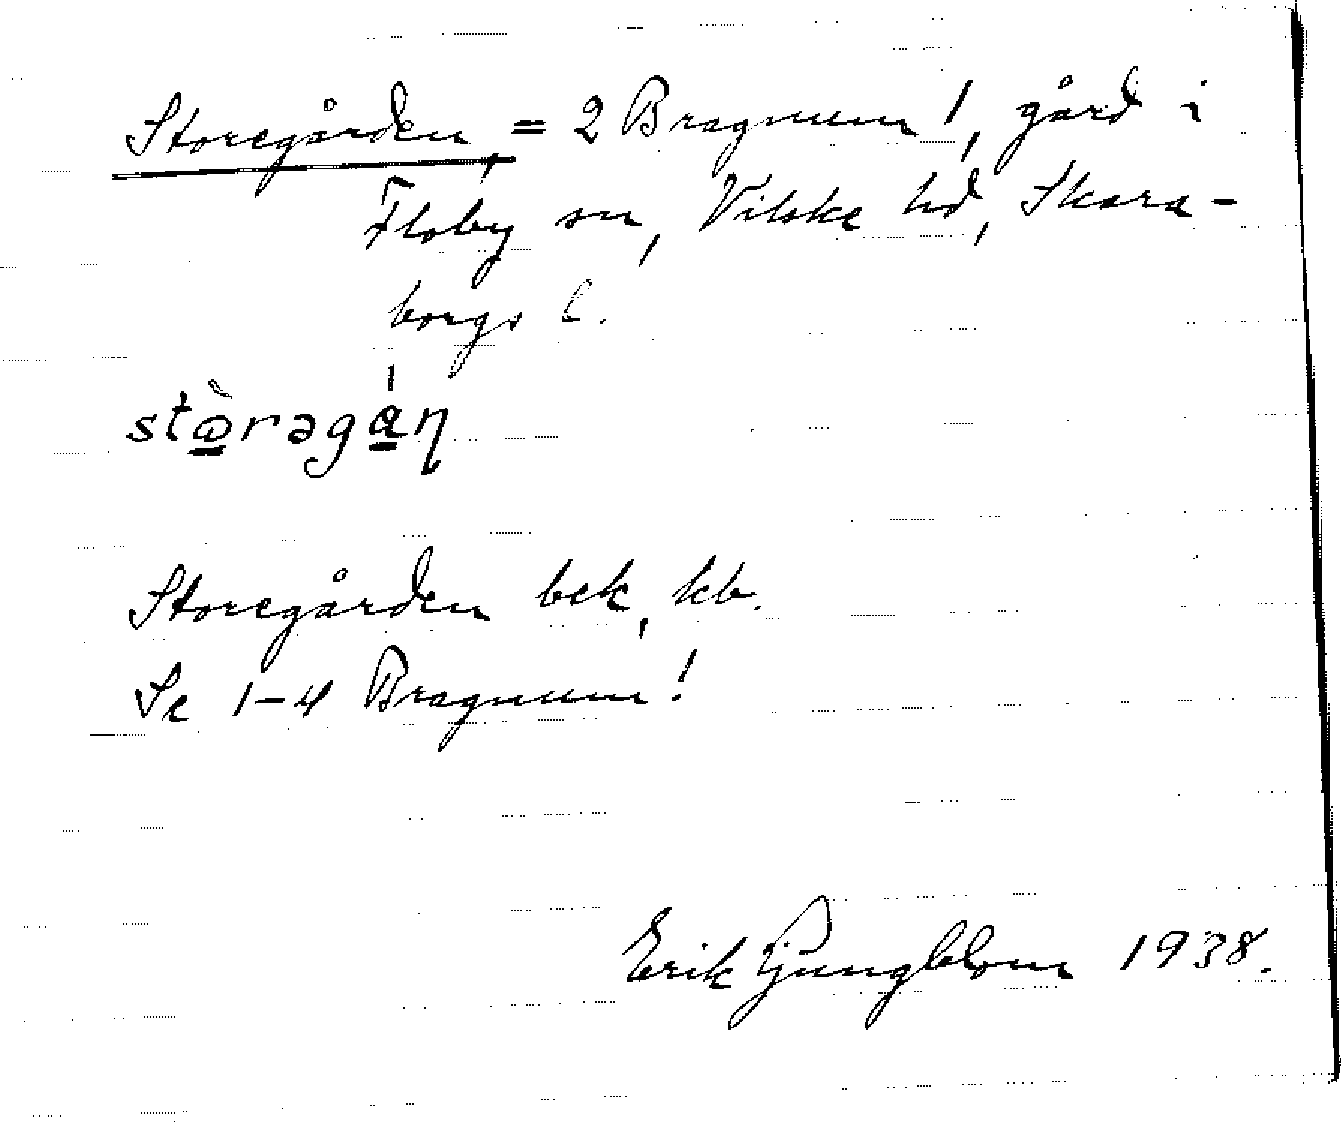 Storegården, = 2 Bragnum!, gård i
Floby sn, Vilske hd, Skara-
borgs l.
stὼ̲rəgá̲ɳ
Storegården bek, kb.
Se 1-4 Bragnum!
Erik Ljungblom 1938.